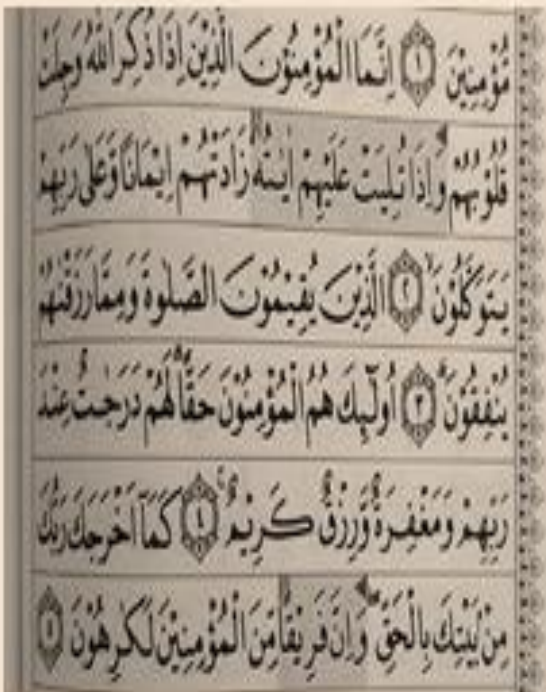 مُّؤْمِنِيْنَ ﴿١﴾ اِنَّمَا الْمُؤْمِنُوْنَ الَّذِيْنَ اِذَا ذُكِرَ اللّٰهُ وَجِلَتْ
قُلُوْبُهُمْ وَاِذَا تُلِيَتْ عَلَيْهِمْ اٰيٰتُهٗ زَادَتْهُمْ اِيْمَانًا وَّعَلٰى رَبِّهِمْ
يَتَوَكَّلُوْنَ ۙ ﴿٢﴾ الَّذِيْنَ يُقِيْمُوْنَ الصَّلٰوةَ وَمِمَّا رَزَقْنٰهُمْ
يُنْفِقُوْنَ ۗ ﴿٣﴾ اُولٰۤىِٕكَ هُمُ الْمُؤْمِنُوْنَ حَقًّا ۗ لَهُمْ دَرَجٰتٌ عِنْدَ
رَبِّهِمْ وَمَغْفِرَةٌ وَّرِزْقٌ كَرِيْمٌ ۚ ﴿٤﴾ كَمَآ اَخْرَجَكَ رَبُّكَ
مِنْۢ بَيْتِكَ بِالْحَقِّ ۖ وَاِنَّ فَرِيْقًا مِّنَ الْمُؤْمِنِيْنَ لَكٰرِهُوْنَ ﴿٥﴾